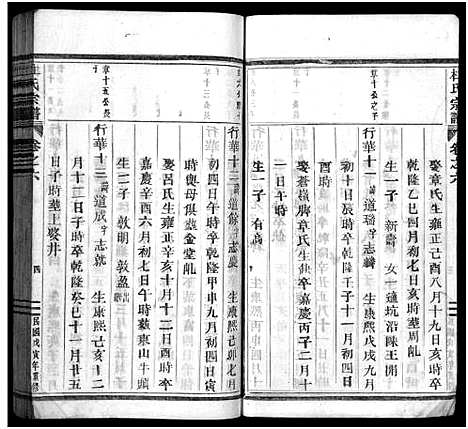 杜氏宗譜
卷之六
三
娶章氏生雍正己酉八月十九日亥時卒
乾隆乙巳四月初七日亥時葬周亂
生一子 新 女一適坑沿陳王開
章十公之子
行華十一 道瑤 字志麟 生康熙戊戌九月
初十日辰時卒乾隆壬子十一月初四日
酉時 娶嶺脚章氏生 缺卒嘉慶丙子二月
一日午時
生一子
行華十二 諱道餘 字志慶 生康熙己卯七月
初四日卯時卒乾隆甲申九月初四日寅
時與母俱葬金堂亂
娶呂氏生雍正辛亥十月十二日酉時卒
嘉慶辛酉六月初七日午時葬東山牛頭
生二子 敦明 敦盈
章十五公長子
行華十三 諱道成 字志就 生康熙己亥十二
月十二日子時卒乾隆癸巳十一月廿五
日子時葬上婺井
杜氏宗譜
卷之六
四
民國戊寅年重修